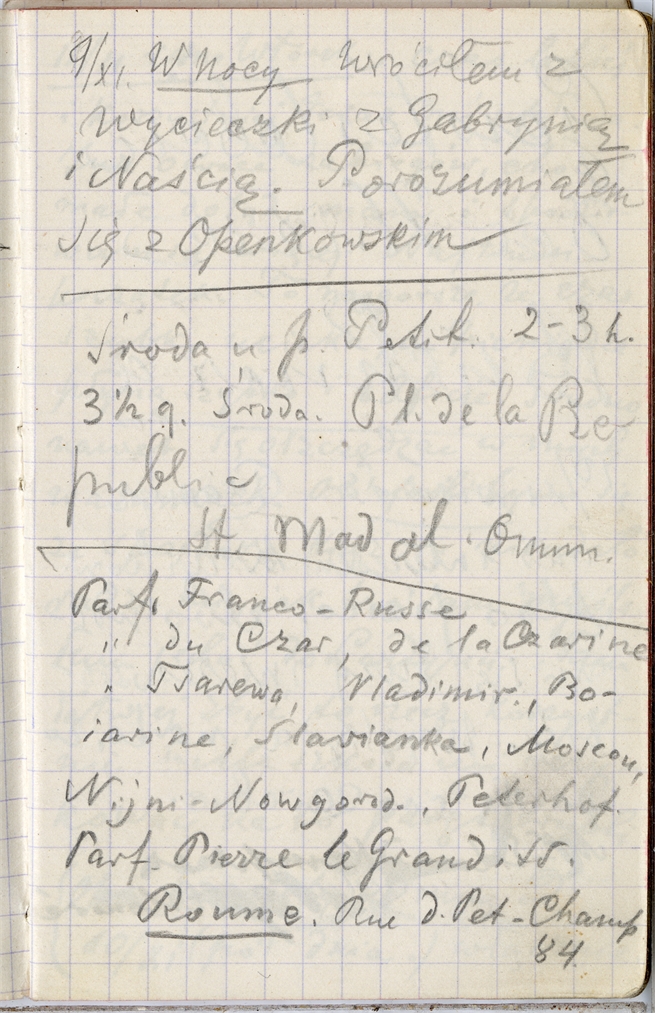 9/XI. W nocy wróciłem z
wycieczki z Gabrynią
i Naścią. Porozumiałem
się z Openkowskim
Środa u p. Petit. 2-3 h.
3 ½ g. Środa. Pl. de la Re
public
St. Mad al. Omn.
Parf. Franco-Russe
" du Czar, de la Czarine
" Tsarewa, Vladimir., Bo-
iarine, Slavianka, Moscou,
Nijni-Nowgorod., Peterhof.
Parf. Pierre le Grand itd.
Roume. Rue d. Pet-Champ
84.